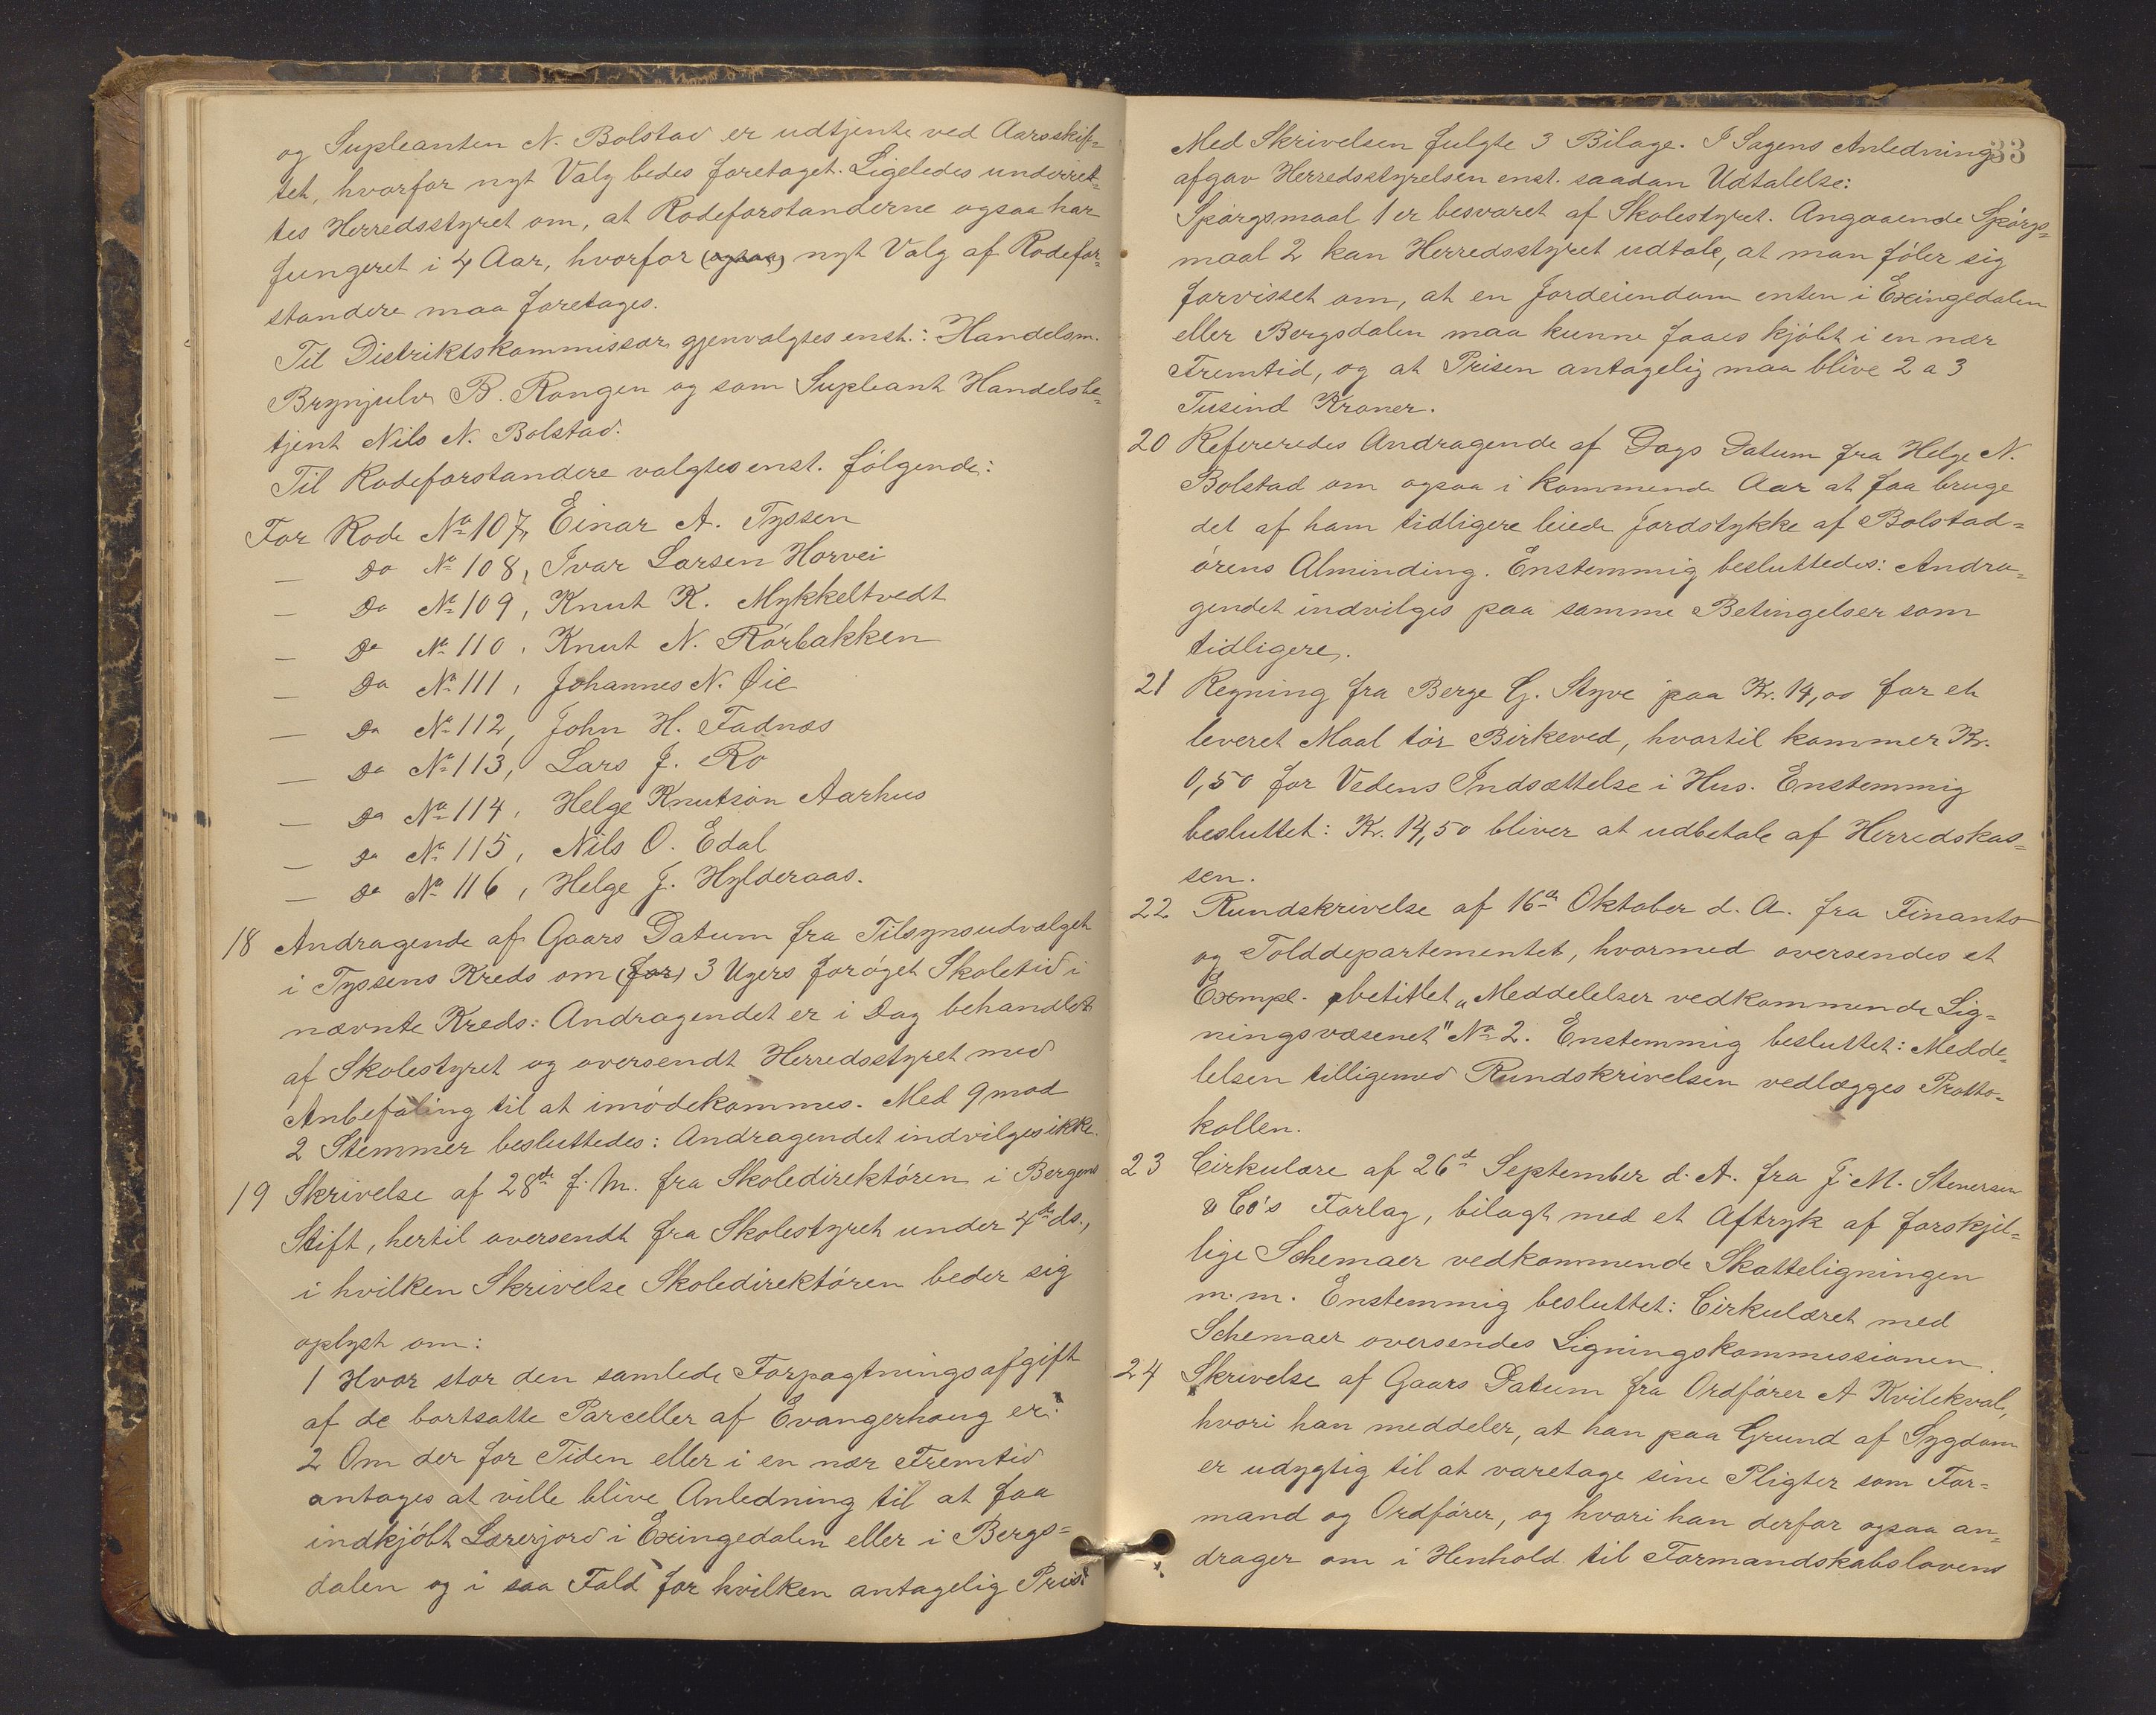 og Supleanten N. Bolstad er udtjente ved Aarsskif-
tet, hvorfor nyt Valg bedes foretaget. Ligeledes underret-
tes Herredsstyret om, at Rodeforstanderne ogsaa har
fungeret i 4 Aar, hvorfor (ogsaa) nyt Valg af Rodefor-
standere maa foretages.
Til Distriktskommissær gjenvalgtes enst.: Handelsm.
Brynjulv B. Rongen og som Supleant Handelsbe-
tjent Nils N. Bolstad.
Til Rodeforstandere valgtes enst. følgende:
For Rode No 107, Einar A. Tyssen
— Do No 108, Ivar Larsen Horvei
— Do No 109, Knut K. Mykkeltvedt
— Do No 110, Knut N. Rörbakken
— Do No 111, Johannes N. Øie
— Do No 112, John H. Fadnæs
— Do No 113, Lars J. Rö
— Do No 114, Helge Knutsön Aarhus
— Do No 115, Nils O. Edal
— Do No 116, Helge J. Hylderaas.
18 Andragende af Gaars Datum fra Tilsynsudvalget
i Tyssens Kreds om (for) 3 Ugers forøget Skoletid i
nævnte Kreds: Andragendet er i Dag behandlet
af Skolestyret og oversendt Herredsstyret med
Anbefaling til at imødekommes. Med 9 mod
2 Stemmer besluttedes: Andragendet indvilges ikke.
19 Skrivelse af 28de f. M. fra Skoledirektören i Bergens
Stift, hertil oversendt fra Skolestyret under 4de ds.,
i hvilken Skrivelse Skoledirektören beder sig
oplyst om:
1 Hvor stor den samlede Forpagtningsafgift
af de bortsatte Parceller af Evangerhaug er?
2 Om der for Tiden eller i en nær Fremtid
antages at ville blive Anledning til at faa
indkjöbt Lærerjord i Exingedalen eller i Bergs-
dalen og i saa Fald for hvilken antagelig Pris?
33
Med Skrivelsen fulgte 3 Bilage. I Sagens Anledning
afgav Herredsstyrelsen enst. saadan Udtalelse:
Spörgsmaal 1 er besvaret af Skolestyret. Angaaende Spörgs-
maal 2 kan Herredsstyret udtale, at man föler sig
forvisset om, at en Jordeiendom enten i Exingedalen
eller Bergsdalen maa kunne faaes kjöbt i en nær
Fremtid, og at Prisen antagelig maa blive 2 a 3
Tusind Kroner.
20 Refereredes Andragende af Dags Datum fra Helge N.
Bolstad om ogsaa i kommende Aar at faa bruge
det af ham tidligere leiede Jordstykke af Bolstad-
örens Alminding. Enstemmig besluttedes: Andra-
gendet indvilges paa samme Betingelser som
tidligere.
21 Regning fra Berge G. Styve paa Kr. 14,00 for et
leveret Maal tör Birkeved, hvortil kommer Kr.
0,50 for Vedens Indsættelse i Hus. Enstemmig
besluttet: Kr. 14,50 bliver at udbetale af Herredskas-
sen.
22 Rundskrivelse af 16de Oktober d. A. fra Finants-
og Tolddepartementet, hvormed oversendes et
Exmpl. betitlet „Meddelelser vedkommende Lig-
ningsvæsenet" No 2. Enstemmig besluttet: Medde-
lelsen tilligemed Rundskrivelsen vedlægges Protto-
kollen.
23 Cirkulære af 26de September d. A. fra J. M. Stenersen
& Co's Forlag, bilagt med et Aftryk af forskjel-
lige Schemaer vedkommende Skatteligningen
m.m. Enstemmig besluttet: Cirkulæret med
Schemaer oversendes Ligningskommissionen.
24 Skrivelse af Gaars Datum fra Ordförer A Kvilekval,
hvori han meddeler, at han paa Grund af Sygdom
er udygtig til at varetage sine Pligter som For-
mand og Ordförer, og hvori han derfor ogsaa an-
drager om i Henhold til Formandskabslovens